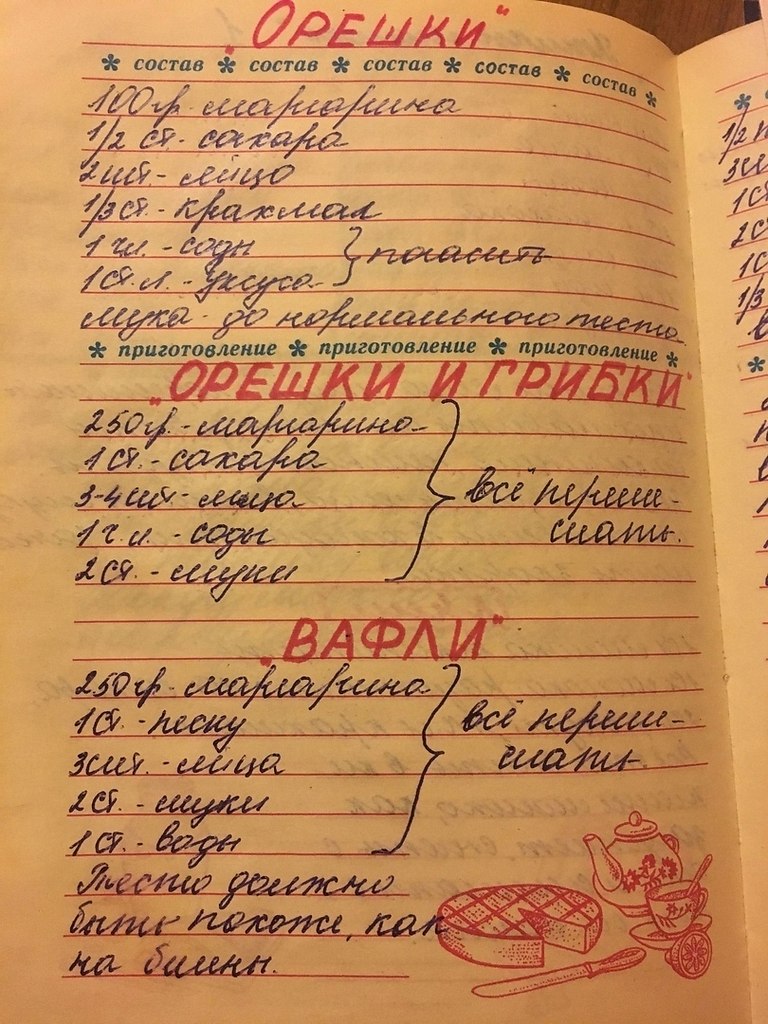 "ОРЕШКИ"
* состав * состав * состав * состав * состав *
100гр. маргарина
1/2 ст. - сахара
2шт. - яйцо
1/3ст. - крахмал
1 ч.л. - соды } погасить
1 ст. л. - уксуса
мука - до нормального теста
* приготовление * приготовление * приготовление *
"ОРЕШКИ И ГРИБКИ"
250гр. - маргарина
1 ст. - сахара
3-4 шт. - яйца } всё переме-
1 ч.л. - соды шать.
2 ст. - муки
"ВАФЛИ"
250гр. маргарина
1 ст. - песку } всё переме-
3 шт. - яйца шать.
2 ст. - муки
1 ст. - воды
Тесто должно
быть похоже, как
на блины.
1/2
1ст
2с
1с
1/3